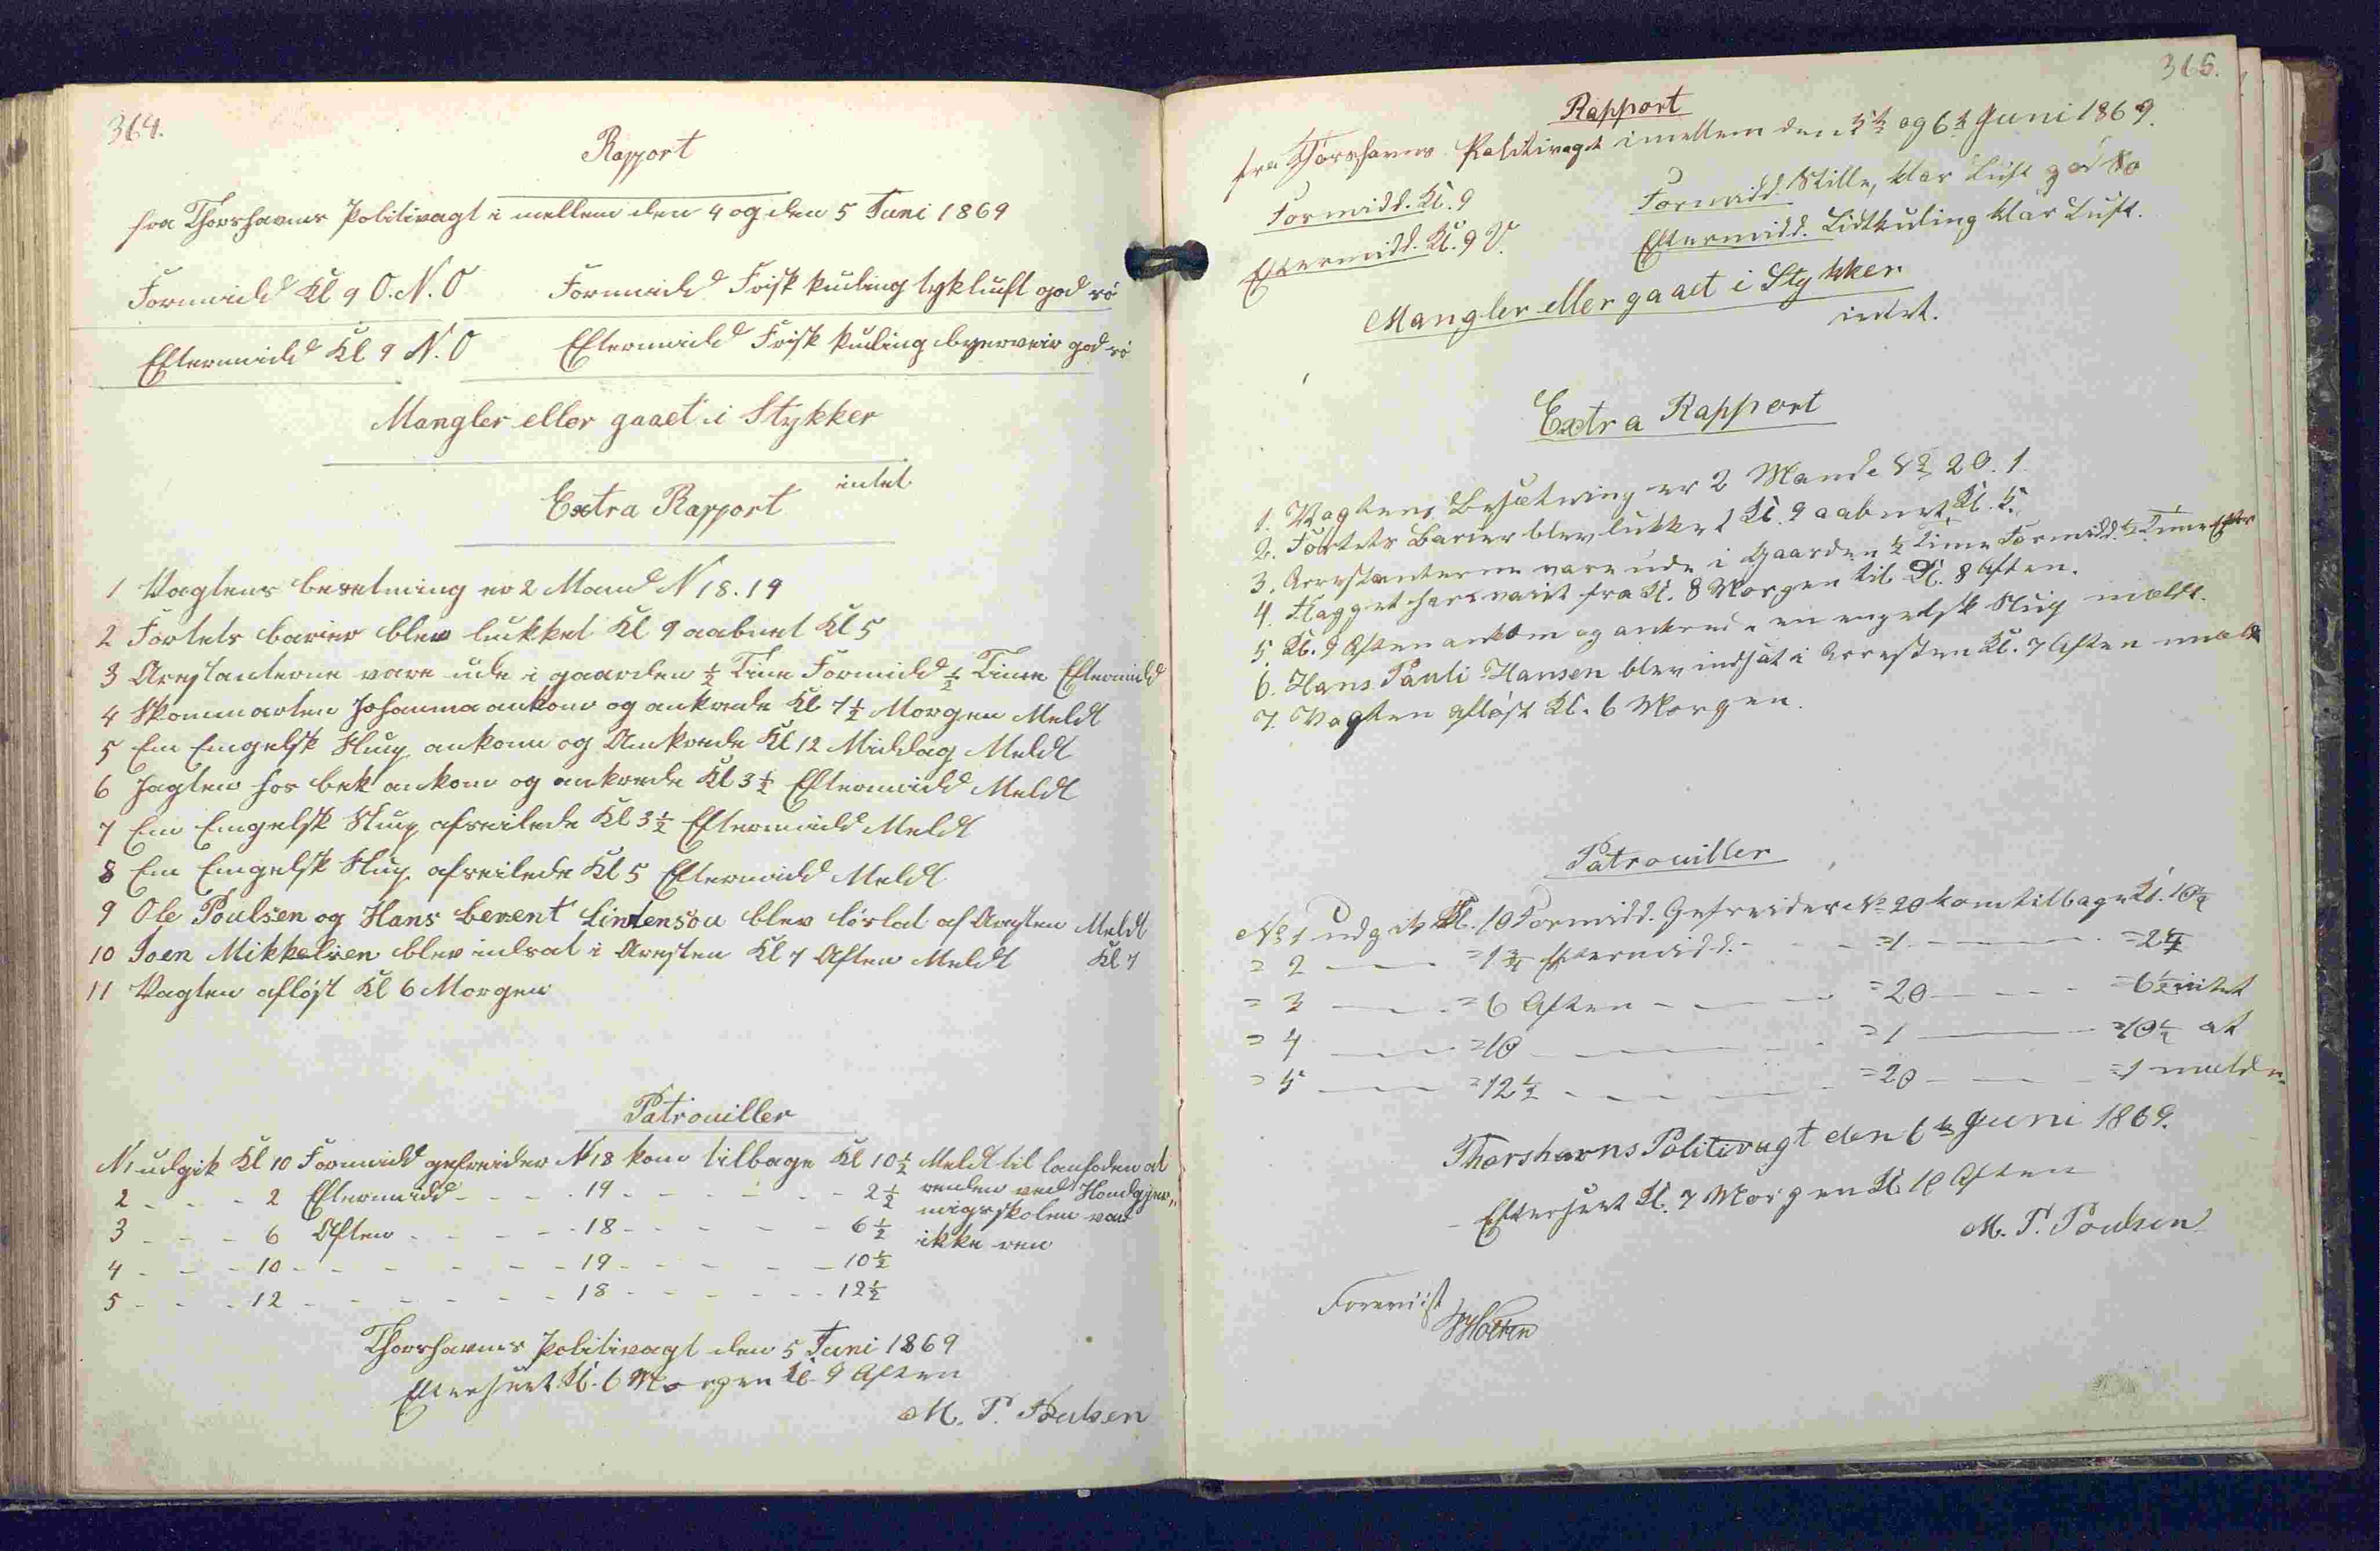 364.
Rapport
fra Thorshavns Politivagt i mellem den 4 og den 5 Juni 1869
Formidd Kl 9 O.N.O Formidd Frisk kuling tykluft god rò
Eftermidd Kl 9 N.O Eftermidd Frisk kuling byerveir god rò
Mangler eller gaaet i Stykker
intet
Extra Rapport
1 Vagtens besetning er 2 Mand N 18. 19
2 Fortets barier blev lukket Kl 9 aabnet Kl 5
3 Arestanterne vare ude i gaarden ½ Time Formidd ½ Time Eftermidd
4 Skonnarten Johanna ankom og ankrede Kl 7½ Morgen Meldt
5 En Engelsk Slup ankom og Ankrede Kl 12 Middag Meldt
6 Jagten fos bek ankom og ankrede Kl 3½ Eftermidd Meldt
7 En Engelsk Slup afseilede Kl 3½ Eftermidd Meldt
8 En Engelsk Slup afseilede Kl 5 Eftermidd Meldt
9 Ole Poulsen og Hans Berent blev löslat af Aresten Meldt
Kl 7
10 Joen Mikkelsen blev indsat i Aresten Kl 7 Aften Meldt
11 Vagten aflöst Kl 6 Morgen
Patrouiller
N1 udgik Kl 10 Formidd gefreider N 18 kom tilbage Kl 10½ Meldt til lanfoden at
2 - - - 2 Eftermidd - - - 19 - - - - 2½ renden ved Handgjer„
3 - - - 6 Aften - - - 18 - - - - 6½ nigsskolen var
4 - - - 10 - - - - - - 19 - - - - 10½ ikke ren
5 - - - 12 - - - - - - 18 - - - - 12½
Thorshavns Politivagt den 5 Juni 1869
Efterseet Kl. 6 Morgen Kl. 9 Aften
M. P. Poulsen
365.
Rapport
fra Thorshavns Politivagt imellem den 5te og 6te Juni 1869.
Formidd. Kl. 9 Formidd. Stille, klar Luft god Ro
Eftermidd. Kl. 9 V. Eftermidd. Lidtkuling klar Luft.
Mangler eller gaaet i Stykker
intet.
Extra Rapport
1. Vagtens Besætning er 2 Mand No 20. 1.
2. Fortets Barier blev lukket Kl. 9 aabnet Kl. 5.
3. Arrestanterne vare ude i Gaarden ½ Time Formidd. ½ Time Efter
4. Flagget har vaiet fra Kl. 8 Morgen til Kl. 8 Aften.
5. Kl. 9 Aften ankom og ankrede en engelsk Slup meldt.
6. Hans Pauli Hansen blev indsat i Arresten Kl. 7 Aften meldt
7. Vagten aflöst Kl. 6 Morgen.
Patrouiller
No 1 udgik Kl. 10 Formidd. Gefreider No 20 kom tilbage Kl. 10½
= 2 — =1¾ Eftermidd. - - =1 — =2¼
= 3 — =6 Aften - - =20 - - =6½ intet
= 4 — =10 — =1 — =10½ at
= 5 — =12½ - - - =20 - - =1 melde
Thorshavns Politivagt den 6te Juni 1869.
Efterseet Kl. 7 Morgen Kl. 10 Aften
M. P. Poulsen
Foreviist